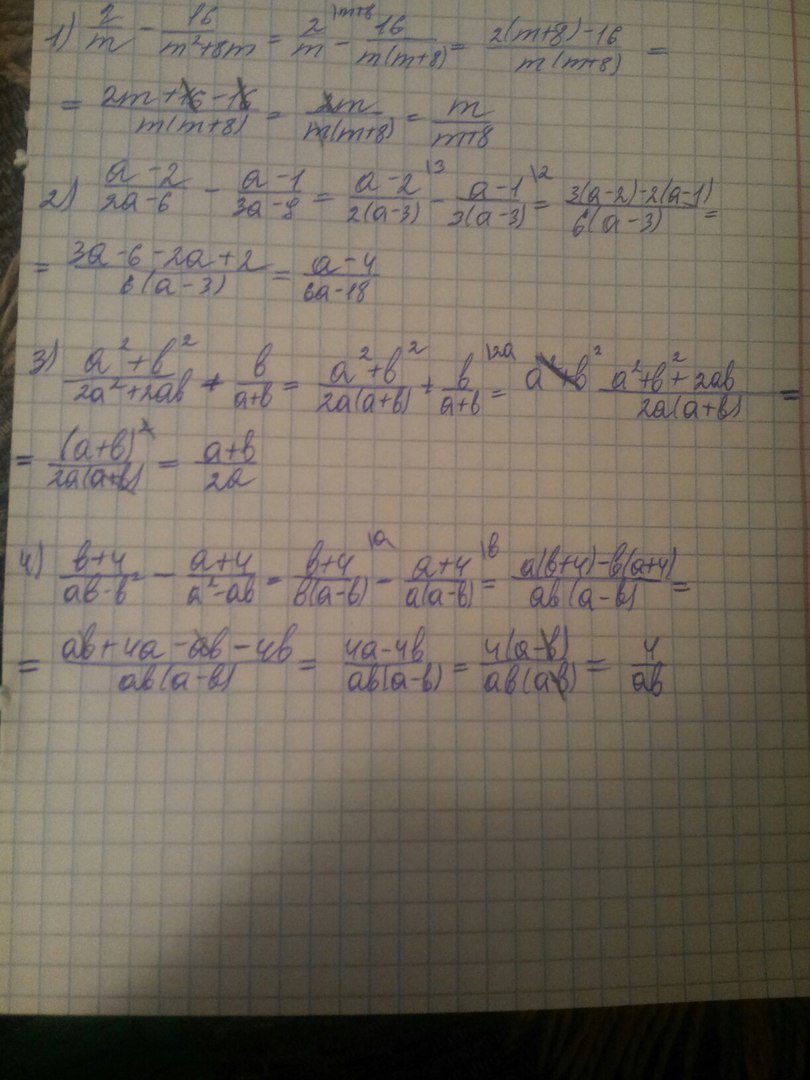 1) 2/m - 16/(m²+8m) = 2/m \m+8 - 16/(m(m+8)) = (2(m+8)-16)/(m(m+8)) =
= (2m+16-16)/(m(m+8)) = 2m/(m(m+8)) = m/(m+8)
2) (a-2)/(2a-6) - (a-1)/(3a-9) = (a-2)/(2(a-3)) \3 - (a-1)/(3(a-3)) \2 = (3(a-2)-2(a-1))/(6(a-3)) =
= (3a-6-2a+2)/(6(a-3)) = (a-4)/(6a-18)
3) (a²+b²)/(2a²+2ab) + b/(a+b) = (a²+b²)/(2a(a+b)) + b/(a+b) \2a = a²+b² (a²+b²+2ab)/(2a(a+b)) =
= (a+b)²/(2a(a+b)) = (a+b)/2a
4) (b+4)/(ab-b²) - (a+4)/(a²-ab) = (b+4)/(b(a-b)) \a - (a+4)/(a(a-b)) \b = (a(b+4)-b(a+4))/(ab(a-b)) =
= (ab+4a-ab-4b)/(ab(a-b)) = (4a-4b)/(ab(a-b)) = 4(a-b)/(ab(a-b)) = 4/ab